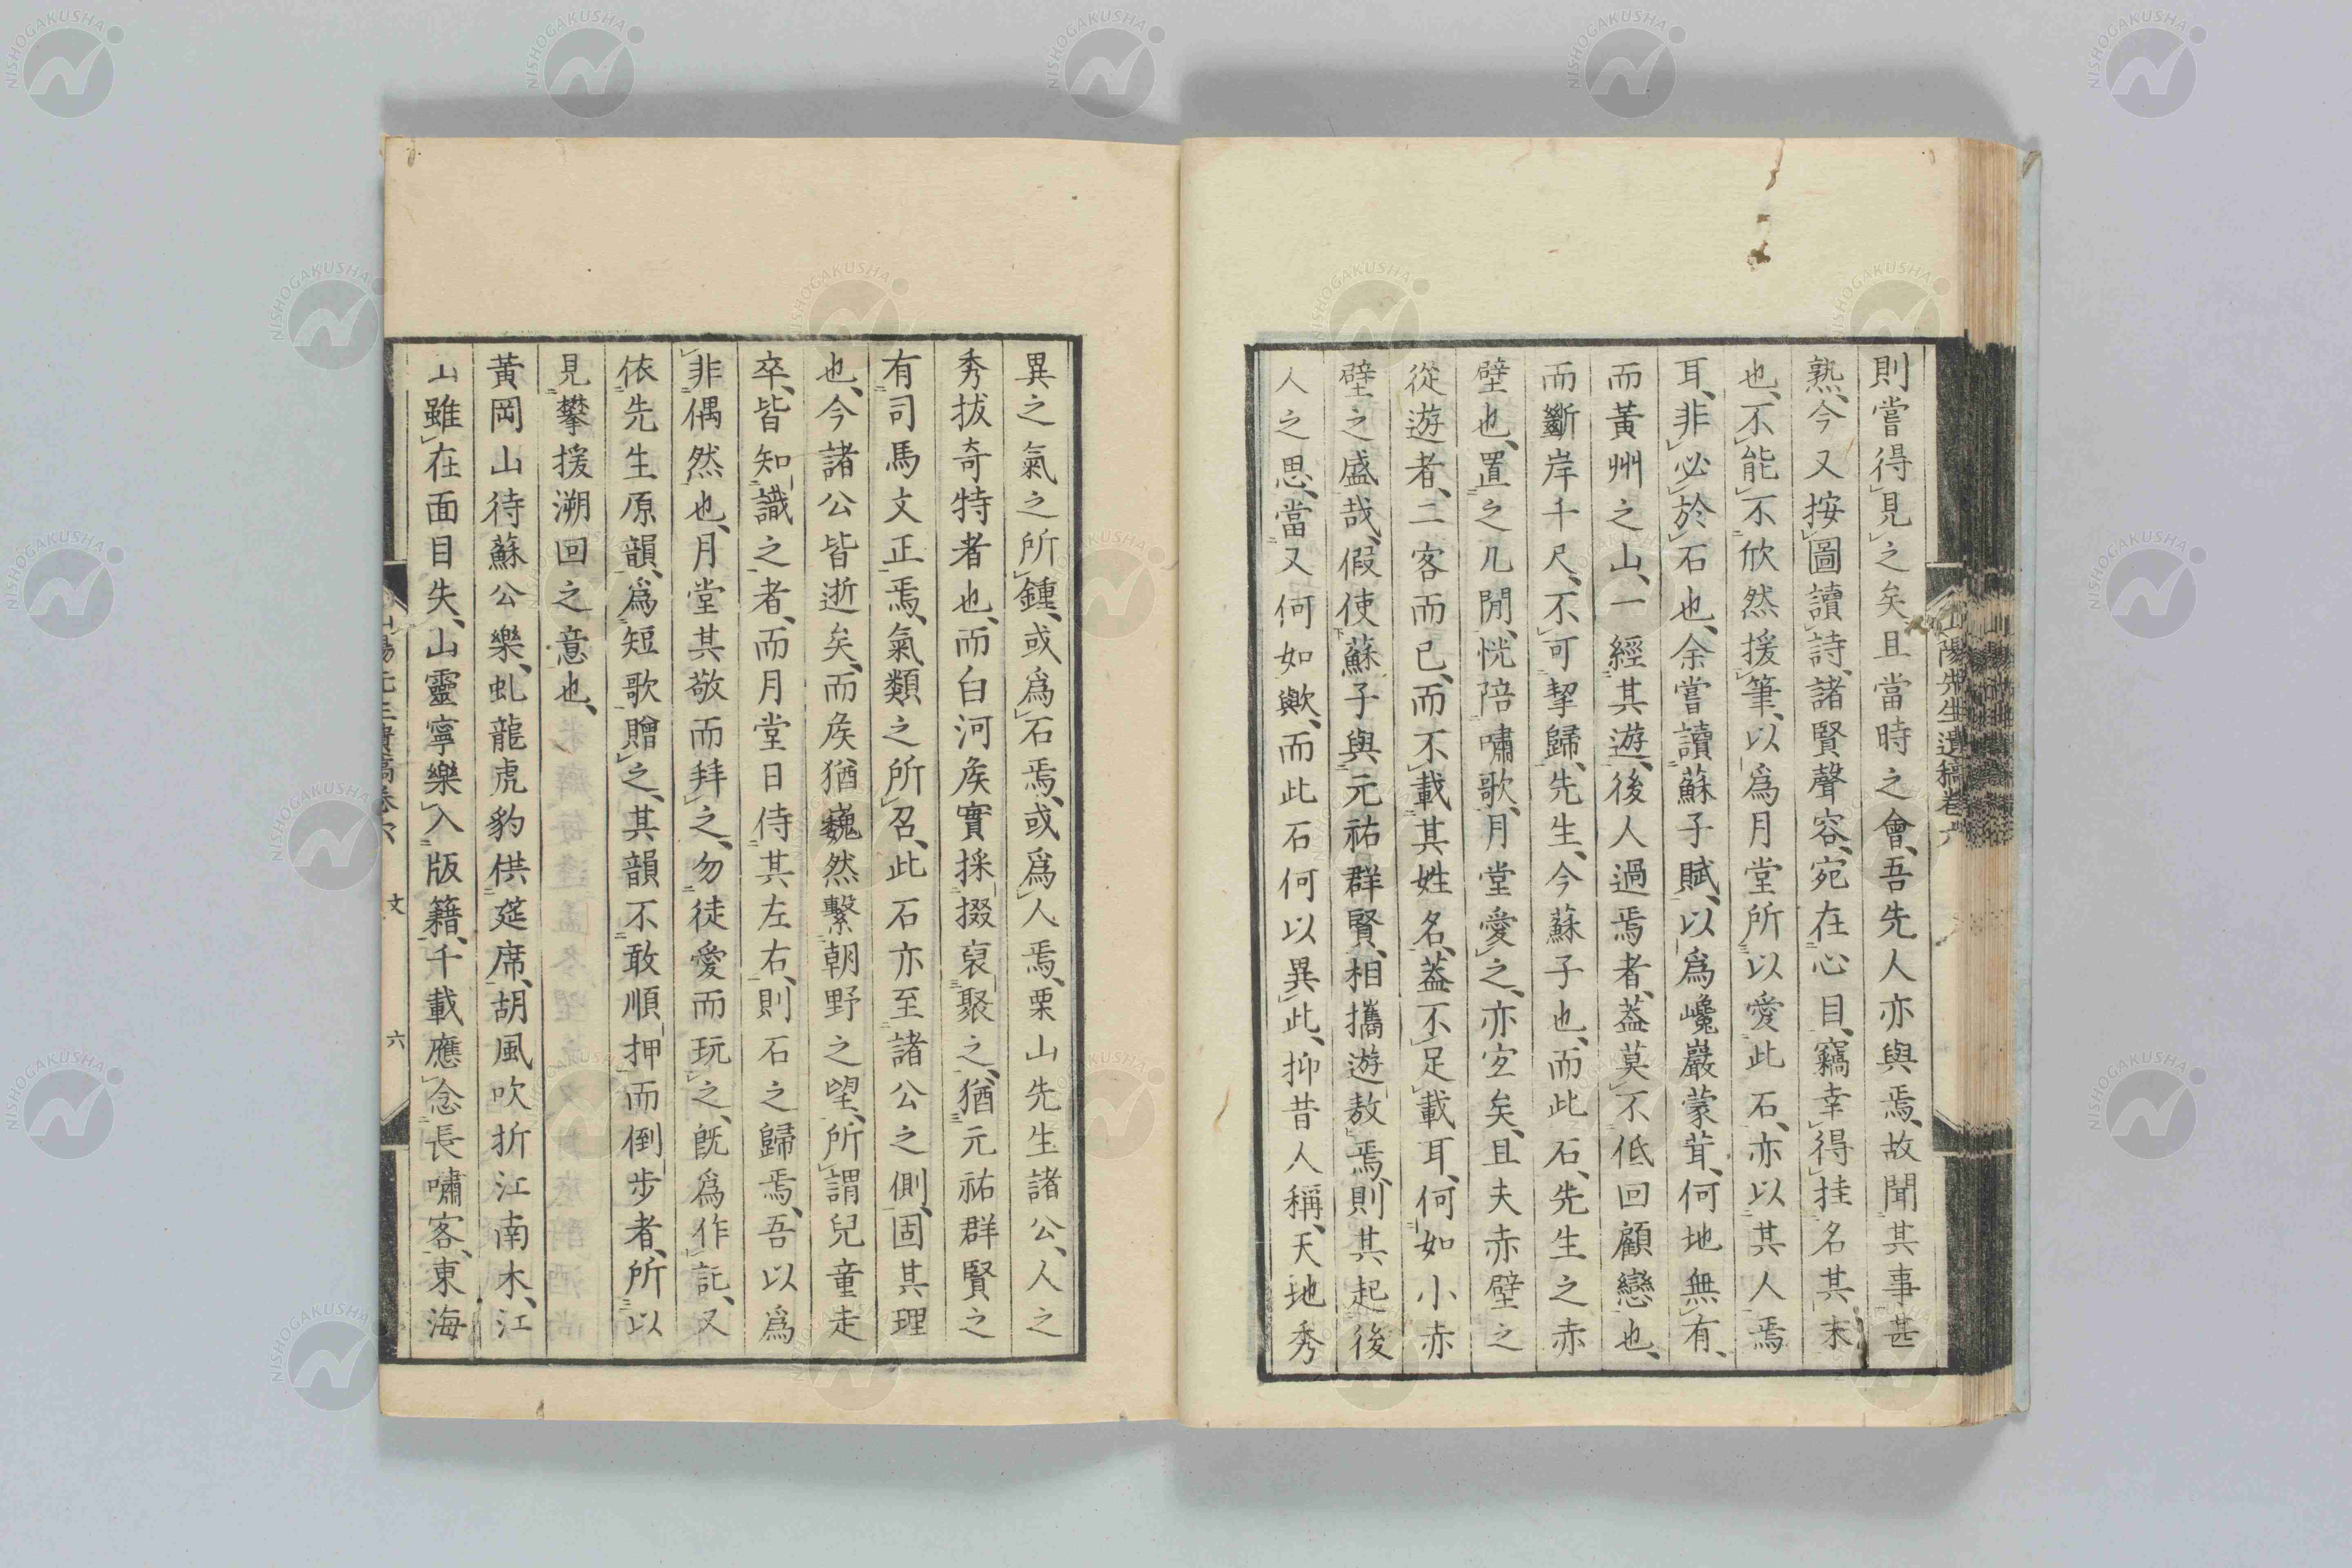 則嘗得見之矣且當時之會、吾先人亦與焉、故聞其事甚
熟、今又按圖讀詩、諸賢聲容、宛在心目、竊幸得挂名其末
也、不能不欣然援筆、以爲月堂所以愛此石、亦以其人焉
耳、非必於石也、余嘗讀蘇子賦、以爲巉巖蒙茸、何地無有、
而黃州之山、一經其遊、後人過焉者、蓋莫不低回顧戀也、
而斷岸千尺、不可挈歸、先生、今蘇子也、而此石、先生之赤
壁也、置之几閒、恍陪嘯歌、月堂愛之、亦宜矣、且夫赤壁之
從遊者、二客而已、而不載其姓名、蓋不足載耳、何如小赤
壁之盛哉、假使蘇子與元祐群賢、相攜遊敖焉、則其起後
人之思、當又何如歟、而此石何以異此、抑昔人稱、天地秀
山陽先生遺稿卷六
異之氣之所鍾、或爲石焉、或爲人焉、栗山先生諸公、人之
秀拔奇特者也、而白河矦實採掇裒聚之、猶元祐群賢之
有司馬文正焉、氣類之所召、此石亦至諸公之側、固其理
也、今諸公皆逝矣、而矦猶巍然繫朝野之望、所謂兒童走
卒、皆知識之者、而月堂日侍其左右、則石之歸焉、吾以爲
非偶然也、月堂其敬而拜之、勿徒愛而玩之、旣爲作記、又
依先生原韻、爲短歌贈之、其韻不敢順押而倒步者、所以
見攀援溯回之意也、
黃岡山待蘇公樂、虬龍虎豹供筵席、胡風吹折江南木、江
山雖在面目失、山靈寧樂入版籍、千載應念長嘯客、東海
文 六
NISHOGAKUSHA